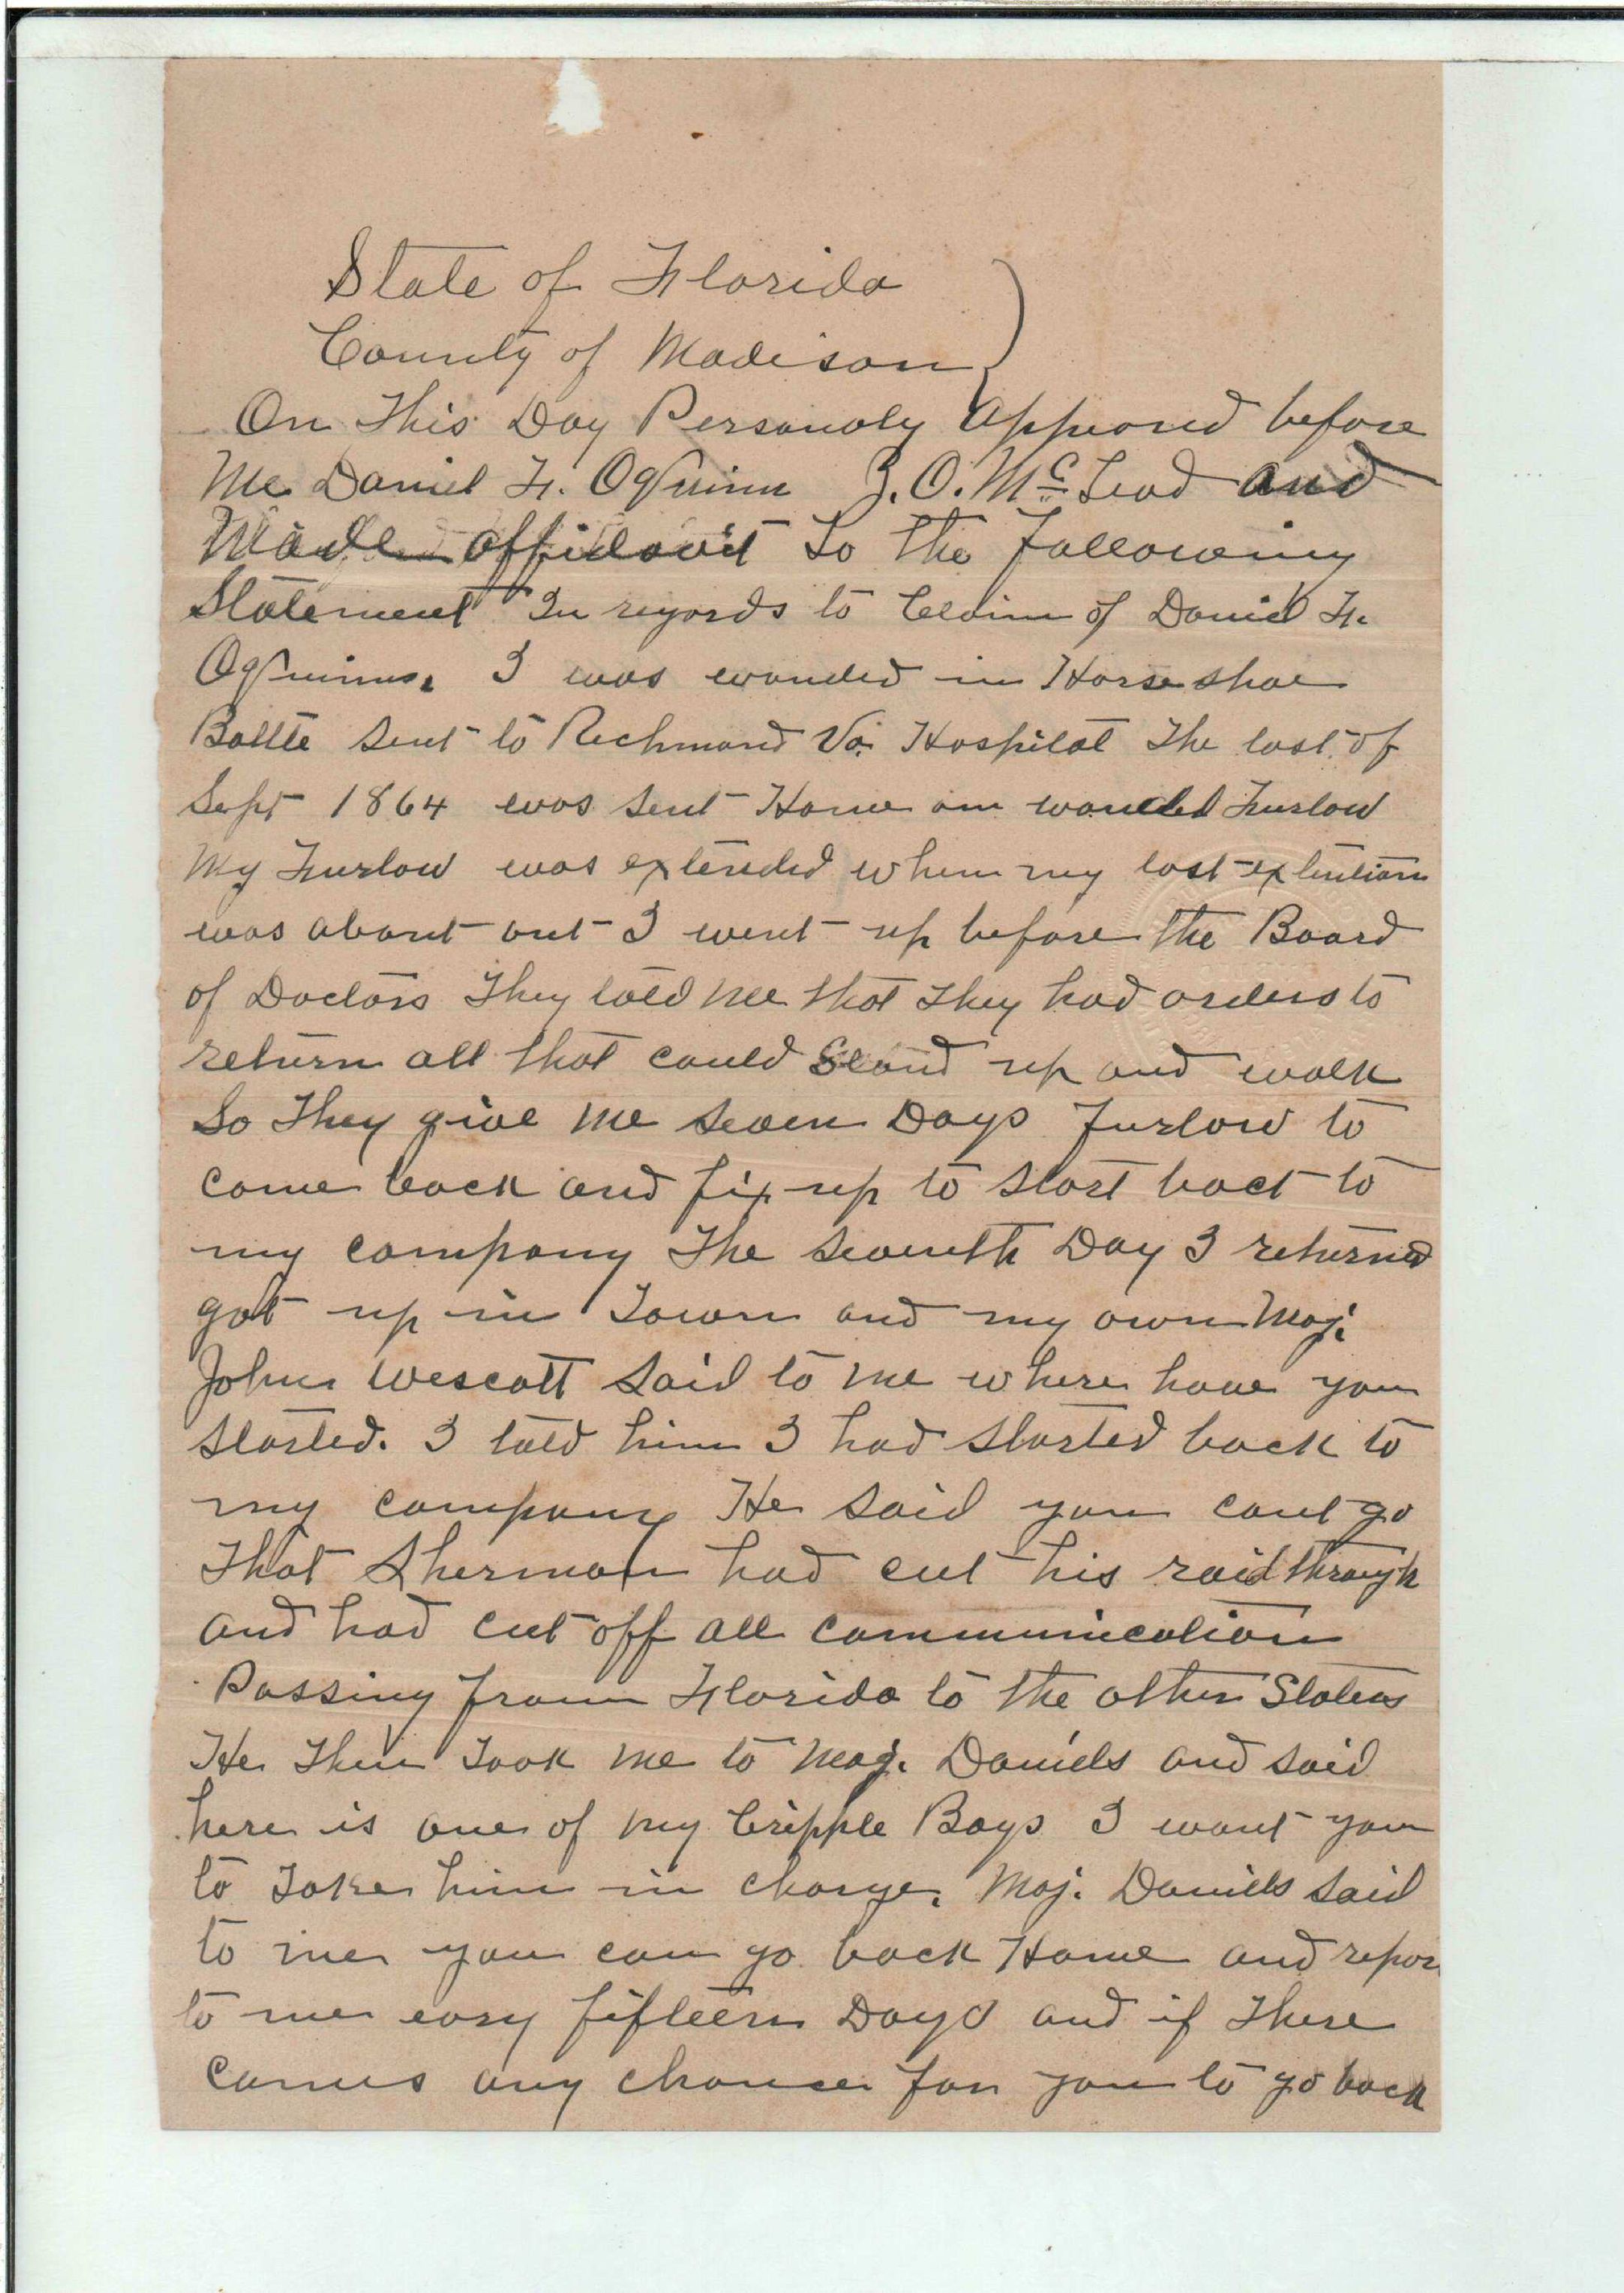 State of Florida
County of Madison
On This Day Personaly appeared before
Me Daniel F. OQuinn Z.O. McLeod and
Made affidavit to the following
Statement In regards to Claim of Daniel F.
OQuinns. I was wonded in Horse shoe
Battle sent to Richmond Va. Hospital The last of
Sept 1864 was sent Home on wonded Furlow
My Furlow was extended when my last extention
was about out I went up before the Board
of Doctors They told me that they had orders to
return all that could Stand up and walk
So They give me seven Days Furlow to
come back and fix up to start back to
my company The seventh Day I returned
got up in Town and my own Maj.
John Wescott said to me where have you
started. I told him I had started back to
my company He said you cant go
That Sherman had cut his raid through
and had cut off all communication
Passing from Florida to the other States
He Then Took me to Maj. Daniels and said
here is one of my Cripple Boys I want you
to Take him in charge. Maj. Daniels said
to me you can go back Home and repor
to me evry fifteen Days and if There
comes any chance for you to go back